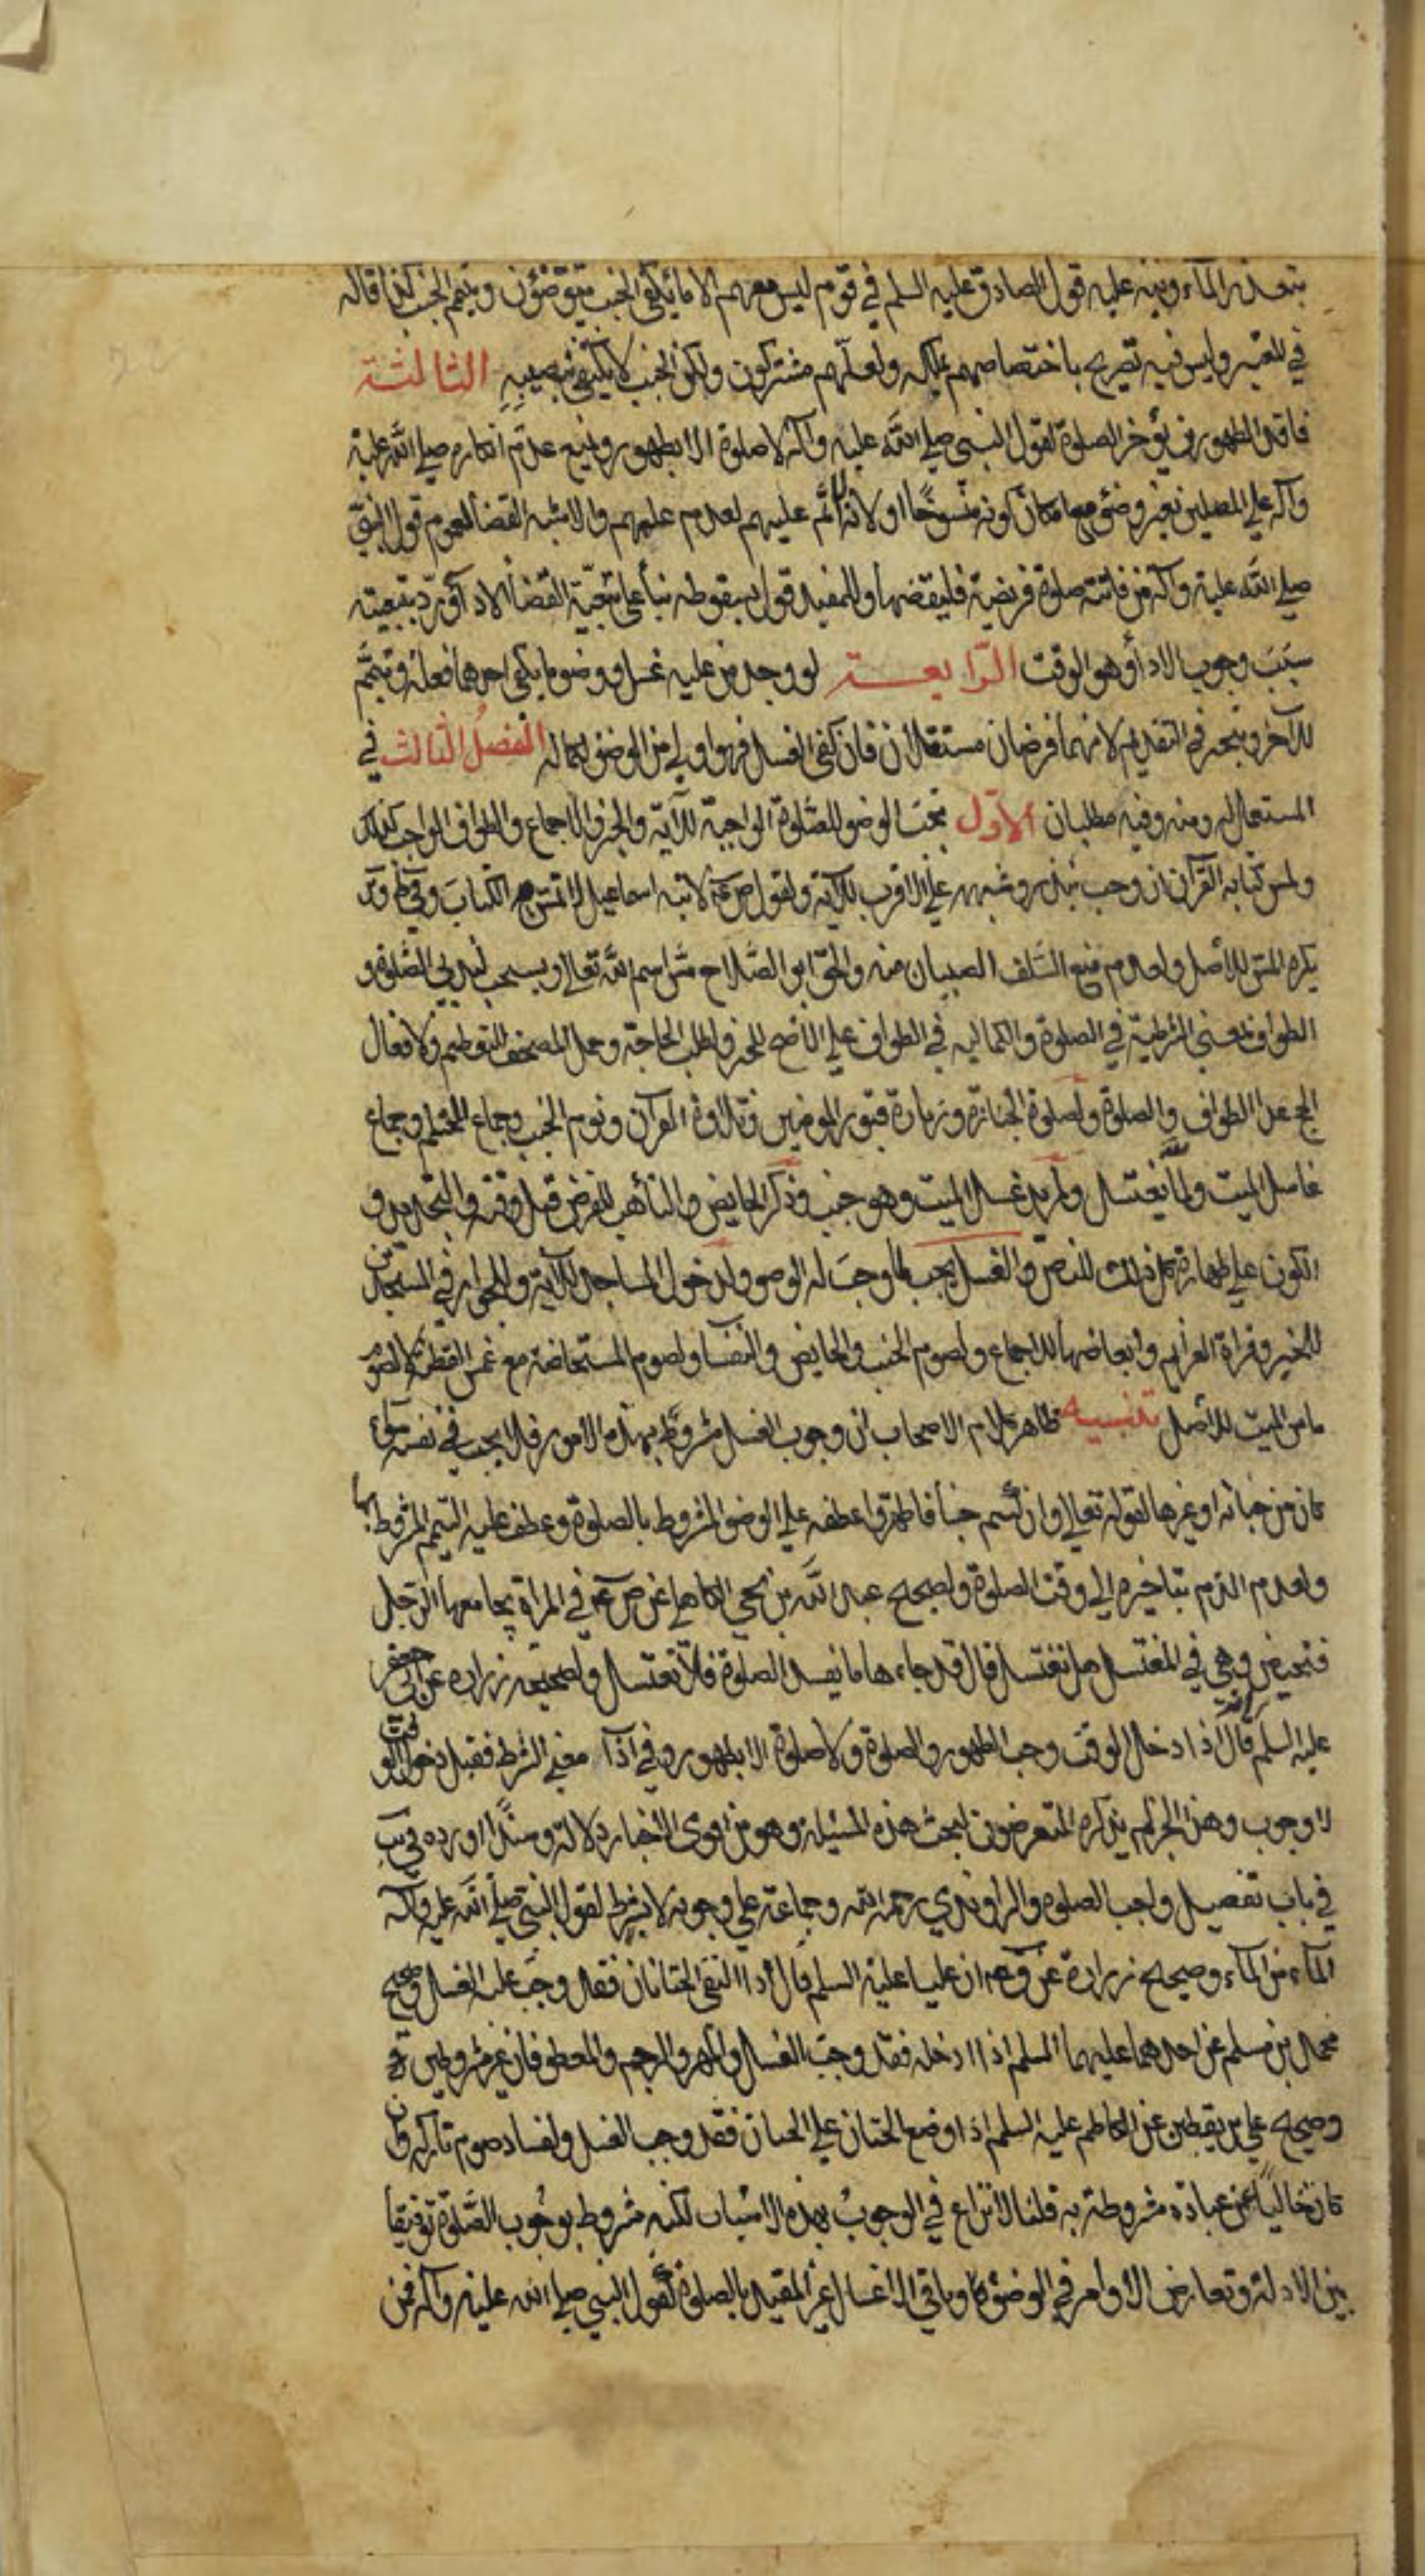 بتعذر الماء وينبه عليه قول الصادق عليه السلم في قوم ليس معهم الا ما يكفي الجنب يتوضؤن ويتيمم الجنب كذا قاله
في المعتبر وليس فيه تصريح باختصاصهم بملكه ولعلهم مشتركون ولكن الجنب لا يكتفي بنصيبه الثالثة
فاقد الطهورين يؤخر الصلوة لقول النبي صلى الله عليه وآله لا صلوة الا بطهور ويمنع عدم انكاره صلى الله عليه
وآله على المصلين بغير وضوء مع امكان كونه منسوخا او لانه لا اثم عليهم لعدم علمهم والاشبه القضاء لعموم قول النبي
صلى الله عليه وآله من فاتته صلوة فريضة فليقضها وللمفيد قول بسقوطه بناء على تبعية القضاء الاداء ويرد بتبعيته
سبب وجوب الاداء وهو الوقت الرابعة لو وجد من عليه غسل ووضوء ما يكفي احدهما فعله وتيمم
للآخر ويتخير في التقديم لانهما فرضان مستقلان فان كفى الغسل فهو اولى من الوضوء لكماله الفصل الثالث في
المستعمل له ومنه وفيه مطلبان الاول يجب الوضوء للصلوة الواجبة للآية والخبر والاجماع والطواف الواجب كذلك
ولمس كتابة القرآن ان وجب بنذر وشبهه على الاقرب للآية ولقول ص عم لابنه اسماعيل لا تمس الكتاب وفي ط وئر
يكره المس للاصل ولعدم منع السلف الصبيان منه والحق ابو الصلاح مس اسم الله تعالى ويستحب لندبي الصلوة و
الطواف بمعنى الشرطية في الصلوة والكمالية في الطواف على الاصح للخبر ولطلب الحاجة وحمل المصحف للتعظيم ولافعال
الحج عدا الطواف والصلوة ولصلوة الجنازة وزيارة قبور المومنين وتلاوة القرآن ونوم الجنب وجماع المحتلم وجماع
غاسل الميت ولما يغتسل ولمريد غسل الميت وهو جنب وذكر الحايض والتأهب للفرض قبل وقته والتجديد و
الكون على طهارة كل ذلك للنص والغسل يجب لما وجب له الوضو ولدخول المساجد للآية وللجواز في المسجدين
للخبر وقراة العزايم وابعاضها للاجماع ولصوم الجنب والحايض والنفسا ولصوم المستحاضة مع غمس القطنة لا لصوم
ماس الميت للاصل تنبيه ظاهر كلام الاصحاب ان وجوب الغسل مشروط بهذه الامور فلا يجب في نفسه سواء
كان من جنابة او غيرها لقوله تعالى وان كنتم جنبا فاطهروا عطفه على الوضوء المشروط بالصلوة وعطف عليه التيمم المشروط بها
ولعدم الذم بتاخيره الى وقت الصلوة ولصحيح عبد الله بن يحيى الكاهلي عن ص عم في المراة يجامعها الرجل
فتحيض وهي في المغتسل هل تغتسل قال قد جاءها ما يفسد الصلوة فلا تغتسل ولصحيحة زرارة عن ابي جعفر
عليه السلم قال اذا دخل الوقت وجب الطهور والصلوة ولا صلوة الا بطهور وفي اذا معنى الشرط فقبل دخول الوقت
لا وجوب وهذا الخبر لم يذكره المتعرضون لبحث هذه المسئلة وهو من اقوى الاخبار دلالة وسندا اورده في يب
في باب تفصيل واجب الصلوة والراوندي رحمه الله وجماعة على وجوبه لا بشرط لقول النبي صلى الله عليه وآله
الماء من الماء وصحيح زرارة عن ان عليا عليه السلم قال اذا التقى الختانان فقد وجب عليه الغسل وصحيح
محمد بن مسلم عن احدهما عليهما السلم اذا ادخله فقد وجب الغسل والمهر والرجم والمعطوفان غير مشروطين
وصحيح علي بن يقطين عن الكاظم عليه السلم اذا وضع الختان على الختان فقد وجب الغسل ولفساد صوم تاركه وان
كان خاليا عن عبادة مشروطة به قلنا لا نزاع في الوجوب بهذه الاسباب لكنه مشروط بوجوب الصلوة توفيقا
بين الادلة وتعارض الاوامر في الوضوء وباقي الاغسال غير المقيد بالصلوة كقول النبي صلى الله عليه وآله من